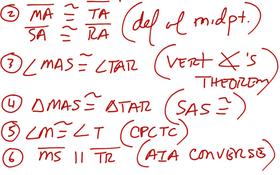 ② MA ≅ TA (def of midpt.)
SA ≅ RA
③ ∠MAS ≅ ∠TAR (VERT ∡'s THEOREM)
④ ΔMAS ≅ ΔTAR (SAS ≅)
⑤ ∠M ≅ ∠T (CPCTC)
⑥ MS || TR (AIA CONVERSE)